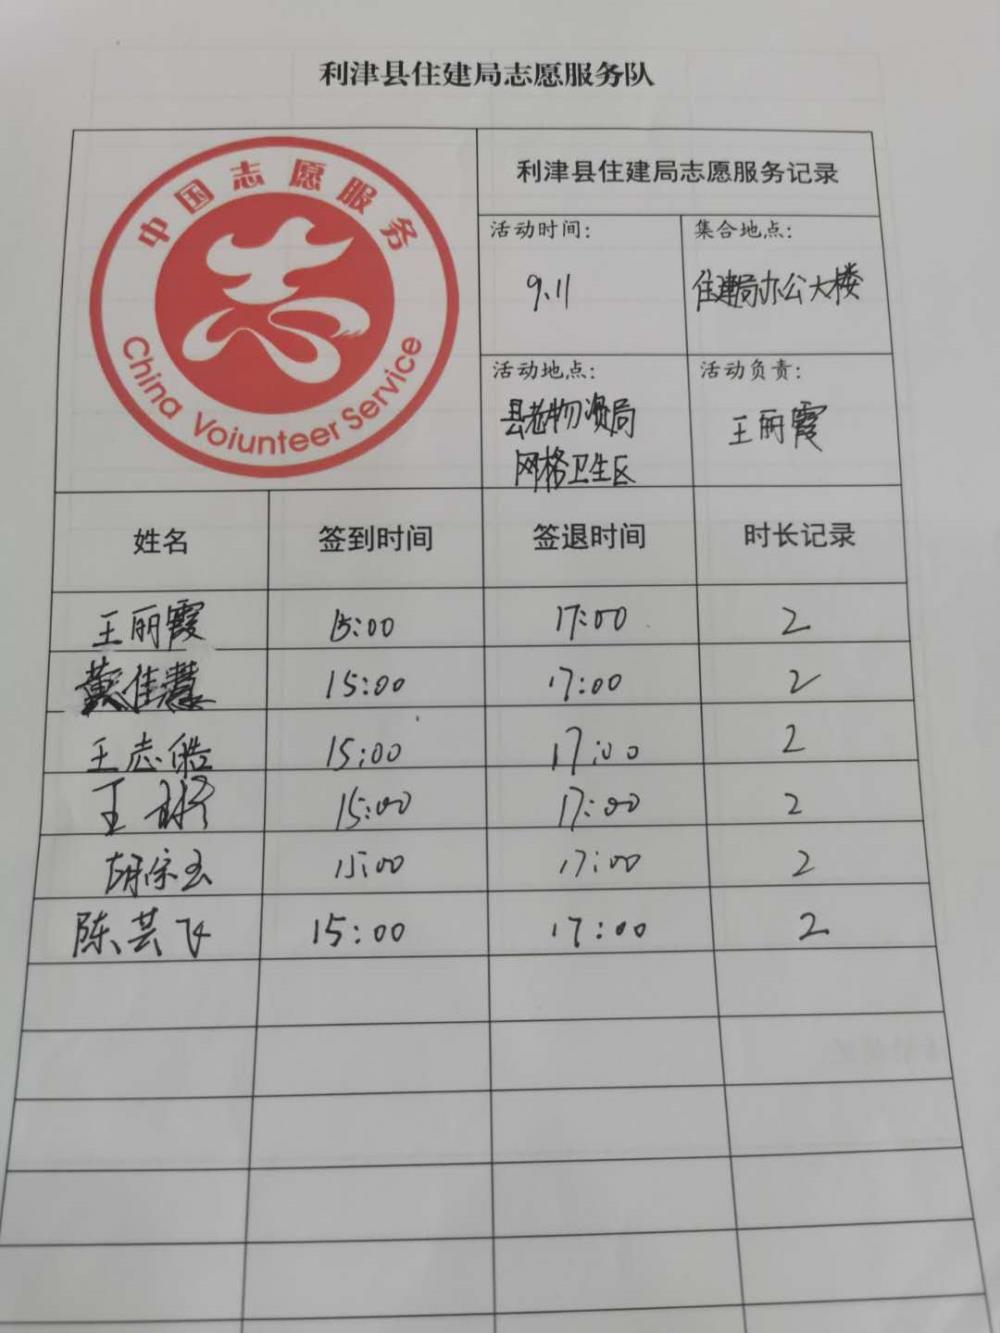 利津县住建局志愿服务队
中国志愿服务
志
China Voiunteer Service
利津县住建局志愿服务记录
活动时间: 集合地点:
9.11 住建局办公大楼
活动地点: 活动负责:
县老物资局 王丽霞
网格卫生区
姓名 签到时间 签退时间 时长记录
王丽霞 15:00 17:00 2
黄佳慧 15:00 17:00 2
王志皓 15:00 17:00 2
王 15:00 17:00 2
胡宗玉 15:00 17:00 2
陈芸飞 15:00 17:00 2